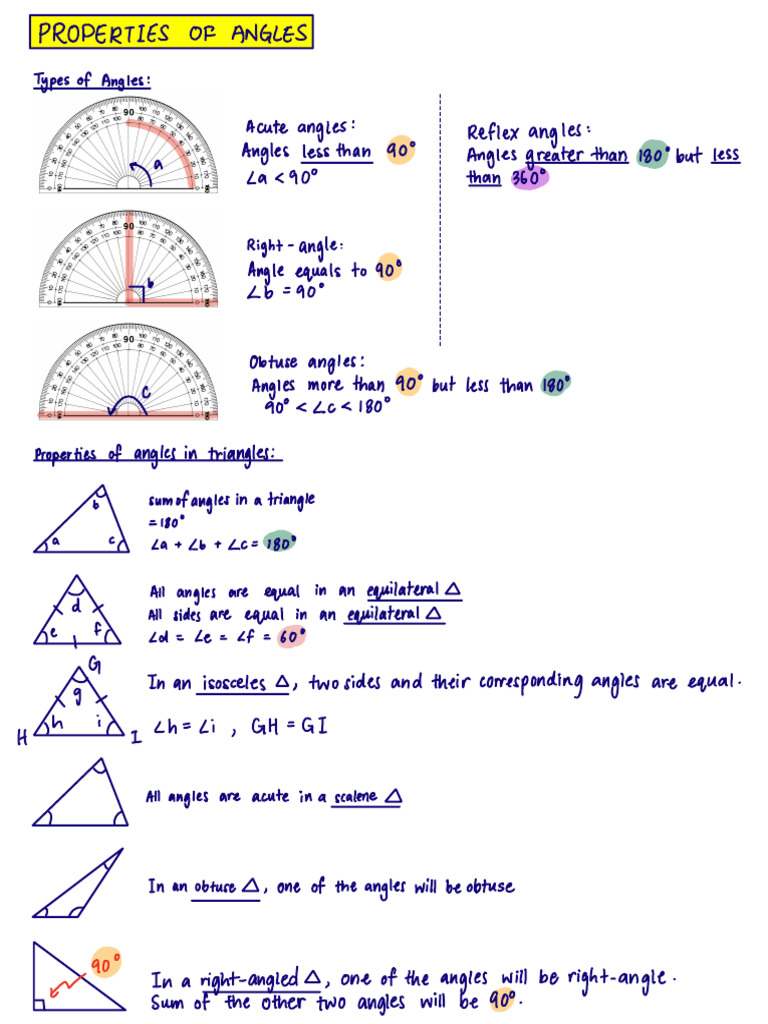 PROPERTIES OF ANGLES
Types of Angles:
90
a
Acute angles:
Angles less than 90°
∠a < 90°
Reflex angles:
Angles greater than 180° but less
than 360°
90
b
Right-angle:
Angle equals to 90°
∠b = 90°
90
c
Obtuse angles:
Angles more than 90° but less than 180°
90° < ∠c < 180°
Properties of angles in triangles:
b
a c
sum of angles in a triangle
= 180°
∠a + ∠b + ∠c = 180°
d
e f
All angles are equal in an equilateral △
All sides are equal in an equilateral △
∠d = ∠e = ∠f = 60°
G
g
h i
H I
In an isosceles △, two sides and their corresponding angles are equal.
∠h = ∠i , GH = GI
All angles are acute in a scalene △
In an obtuse △, one of the angles will be obtuse
90°
In a right-angled △, one of the angles will be right-angle.
Sum of the other two angles will be 90°.